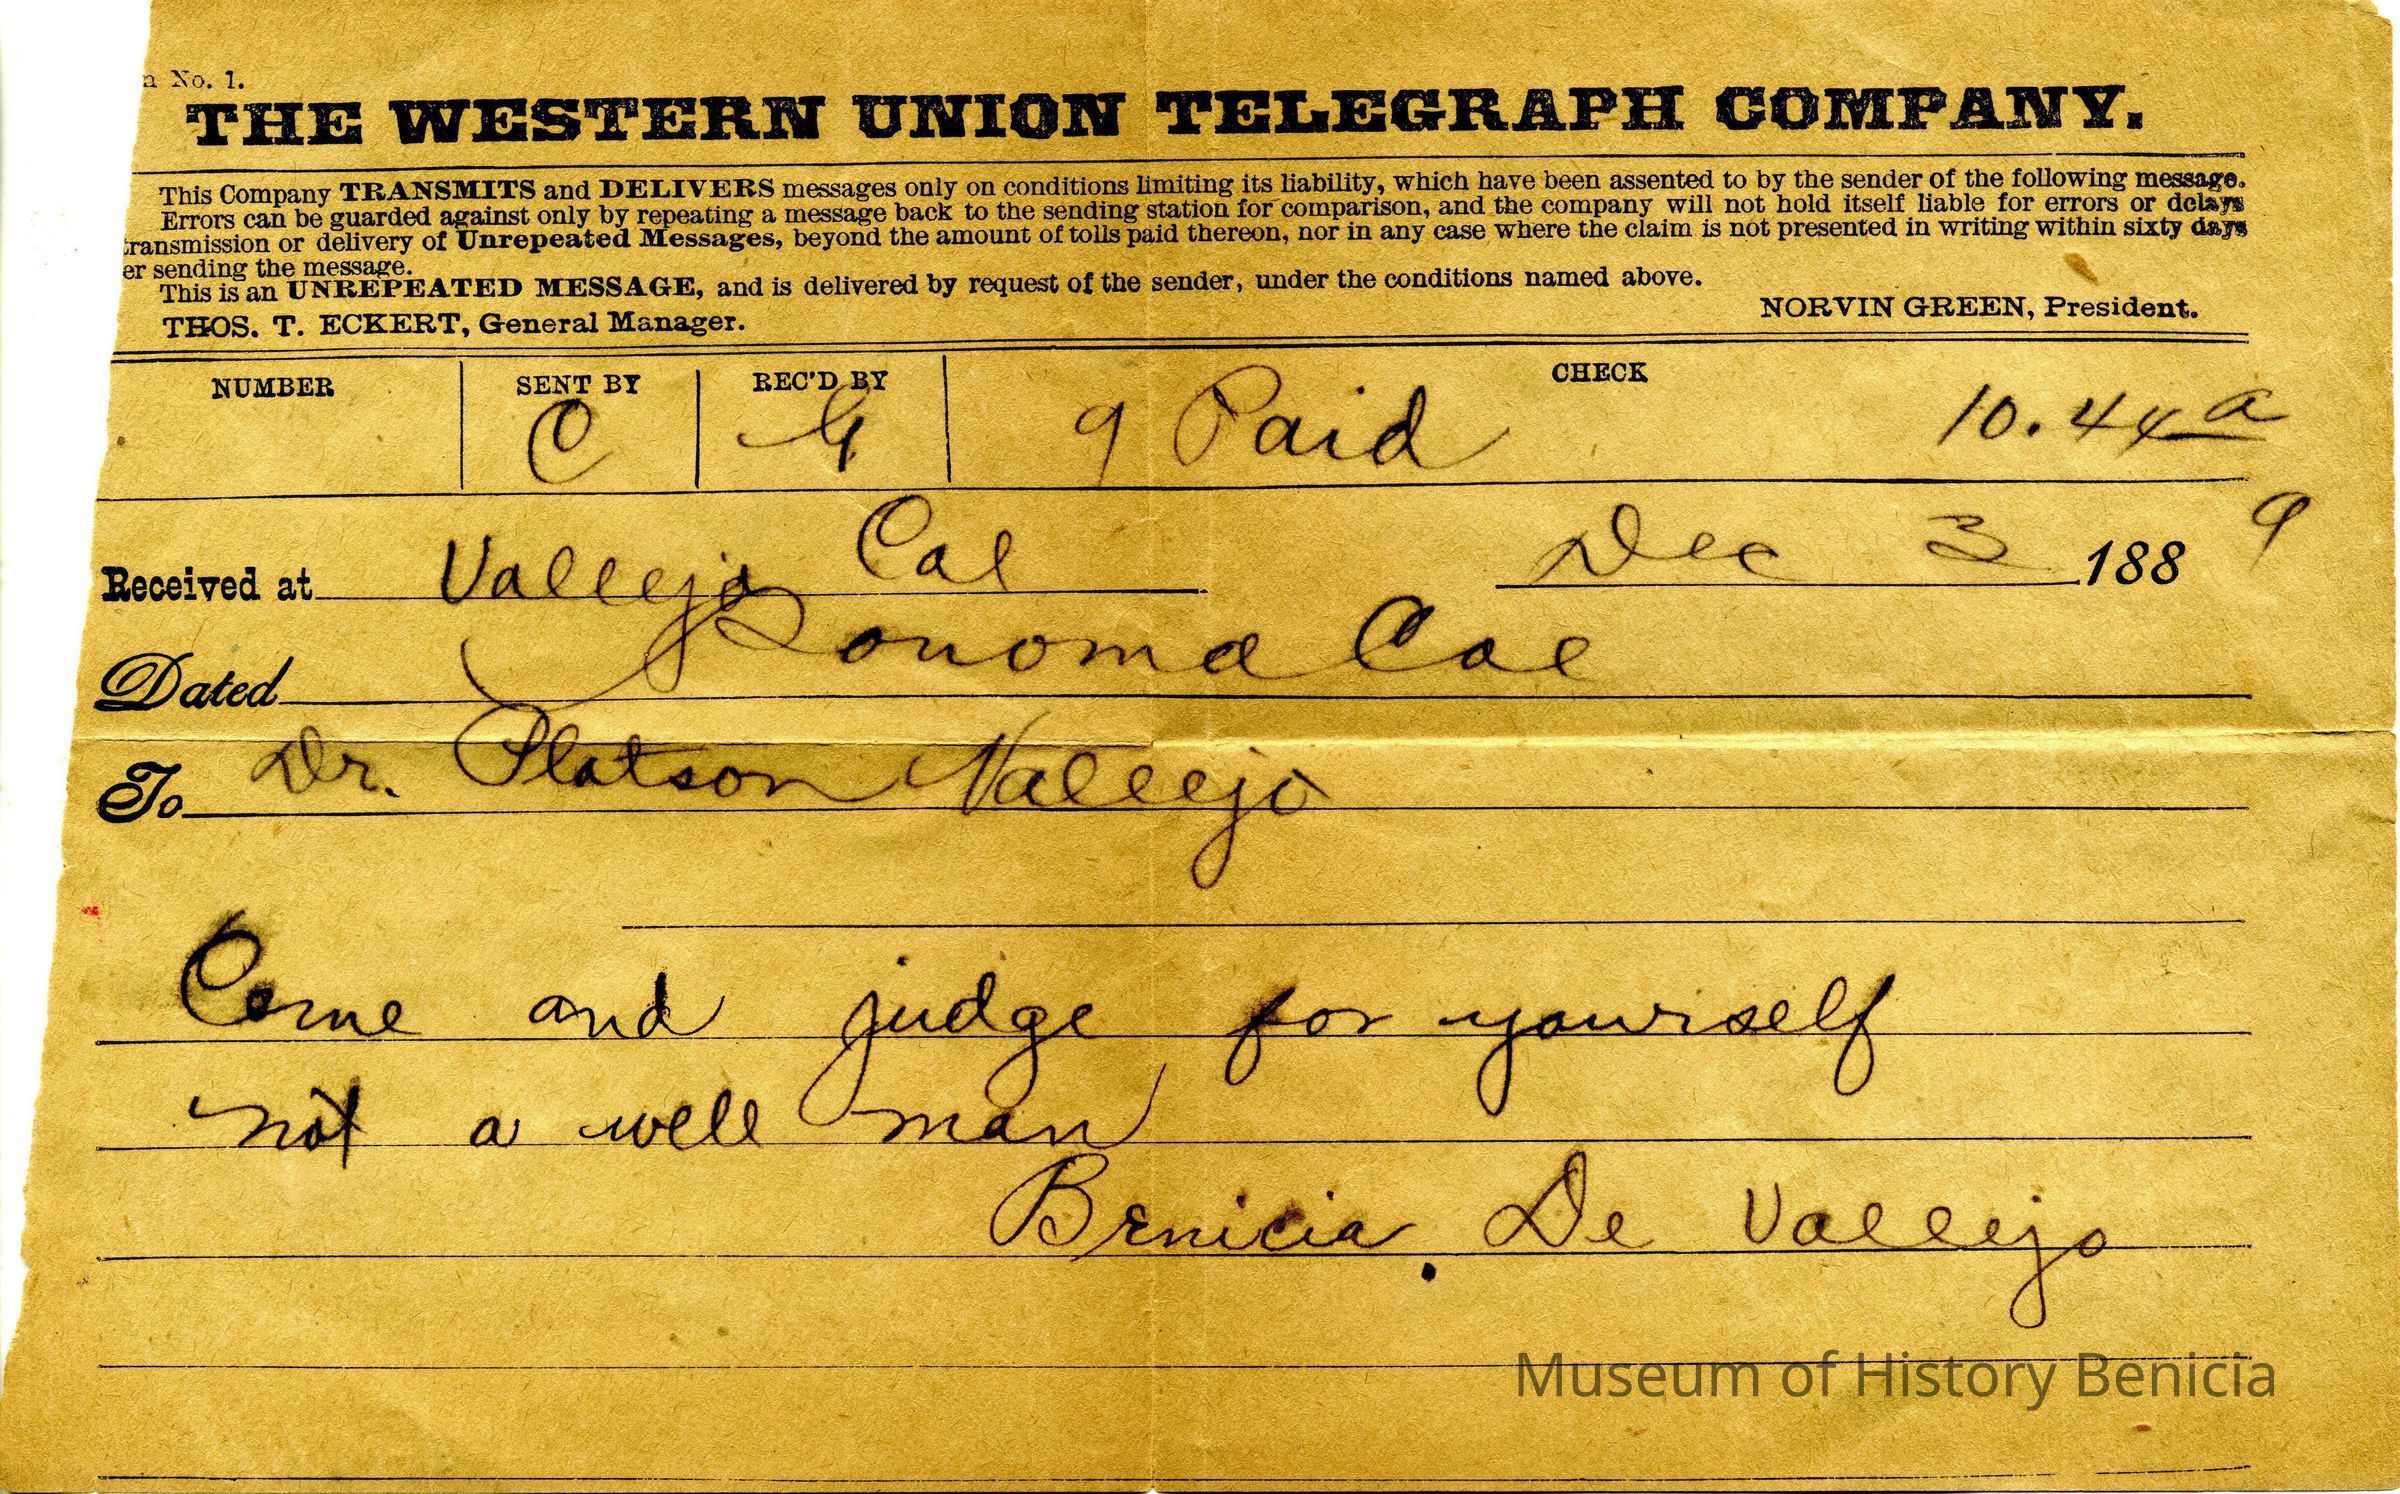 No. 1.
THE WESTERN UNION TELEGRAPH COMPANY.
This Company TRANSMITS and DELIVERS messages only on conditions limiting its liability, which have been assented to by the sender of the following message.
Errors can be guarded against only by repeating a message back to the sending station for comparison, and the company will not hold itself liable for errors or delays
transmission or delivery of Unrepeated Messages, beyond the amount of tolls paid thereon, nor in any case where the claim is not presented in writing within sixty days
er sending the message.
This is an UNREPEATED MESSAGE, and is delivered by request of the sender, under the conditions named above.
THOS. T. ECKERT, General Manager. NORVIN GREEN, President.
NUMBER SENT BY REC'D BY CHECK
C G 9 Paid 10.44 a
Received at Vallejo Cal Dec 3 1889
Dated Sonoma Cal
To Dr. Platson Vallejo
Come and judge for yourself
not a well man
Benicia De Vallejo
Museum of History Benicia